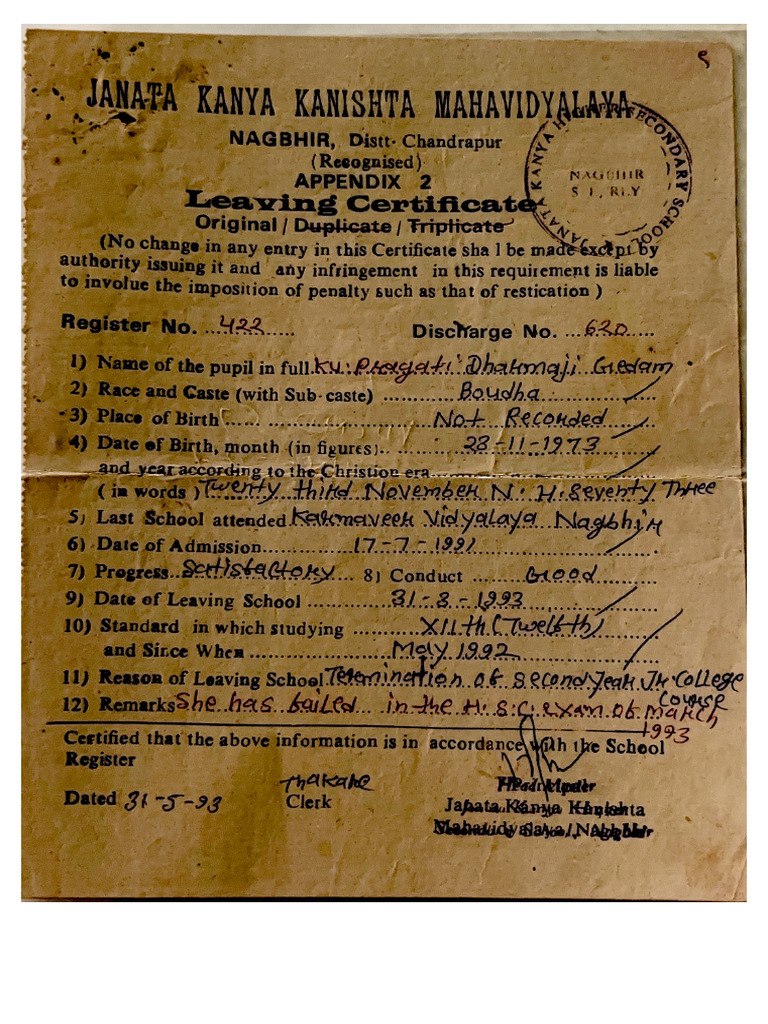 JANATA KANYA KANISHTA MAHAVIDYALAYA
NAGBHIR, Distt. Chandrapur
(Recognised)
APPENDIX 2
Leaving Certificate
Original / Duplicate / Triplicate
JANATA KANYA HIGHER SECONDARY SCHOOL
NAGBHIR
S. E. RLY
(No change in any entry in this Certificate sha l be made except by
authority issuing it and any infringement in this requirement is liable
to involue the imposition of penalty such as that of restication )
Register No. ...422............ Discharge No. ...620......
1) Name of the pupil in full Ku. Pragati Dharmaji Gedam
2) Race and Caste (with Sub-caste) ............Boudha............
3) Place of Birth............Not Recorded............
4) Date of Birth, month (in figures)....23-11-1973............
and year according to the Christion era............
( in words ) Twenty third November N. H. Seventy Three
5) Last School attended Karmaveer Vidyalaya Nagbhir
6) Date of Admission............17-7-1991............
7) Progress..Satisfactory.... 8) Conduct ........Good........
9) Date of Leaving School ............31-3-1993............
10) Standard in which studying ............XIIth (Twelfth)
and Since When ............May 1992............
11) Reason of Leaving School Termination of Second Year Jr. College Course
12) Remarks She has failed in the H.S.C. exam of March 1993
Certified that the above information is in accordance with the School
Register
Dated 31-5-93
Thakare
Clerk
Janata Kanya Kanishta
Mahavidyalaya Nagbhir